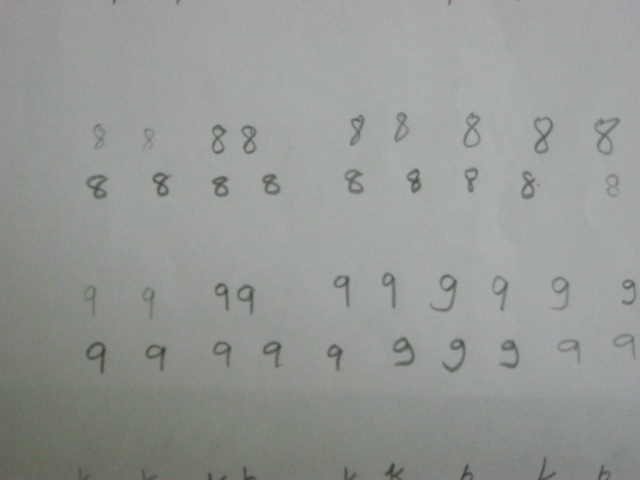 8 8 8 8 8 8 8 8 8
8 8 8 8 8 8 8 8 8
9 9 9 9 9 9 9 9 9 9
9 9 9 9 9 9 9 9 9 9